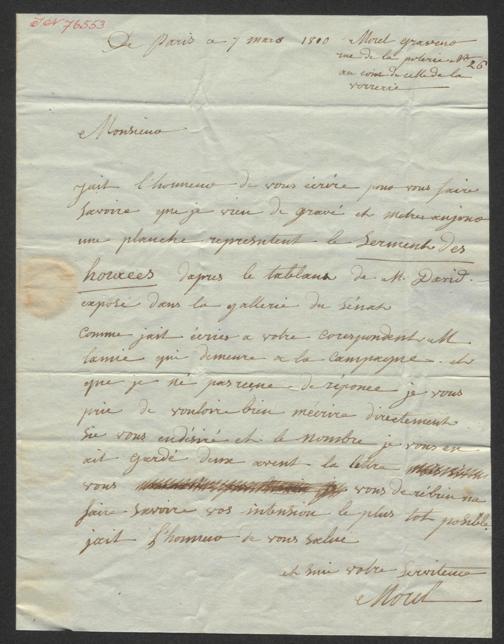 JN 76553
De Paris a 7 mars 1810
Morel graveur
rue de la poterie N° 26
au coin de celle de la
verrerie
Monsieur
jait l'honneur de vous écrire pour vous faire
savoire que je vien de gravé et metre aujour
une planche representent le Serment des
horaces d'apres le tableau de M. David.
exposé dans la gallerie du Sénat
comme jait écries a votre corespondent M
lamie qui demeure a la campagne. et
que je né pas reçue de réponce je vous
prie de vouloire bien mécrire directement
Sie vous endésiré et le nombre je vous en
ait gardé deux avent la lettre
vous vous de rebien me
faire savoire vos intension le plus tot posible.
jait l'honneur de vous salué
et suis votre Serviteur
Morel